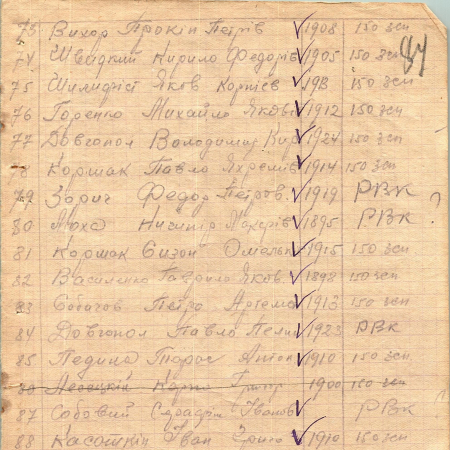 73 Вихор Прокіп Петрів 1908 150 зсп
74 Швидкий Кирило Федорів 1905 150 зсп
75 Яков Корнієв 150 зсп
76 Горенко Михайло Яков 1912 150 зсп
77 Довгопол Володимир Кир 1924 150 зсп
78 Коршак Павло 1914 150 зсп
79 Зорич Федор Петров. 1919 РВК
80 1895 РВК ?
81 Коршак Сизон Омельк 1915 150 зсп
82 Василенко Гаврило Яков 1898 150 зсп
83 Петро Артема 1913 150 зсп
84 Довгопол Павло Пели 1923 РВК
85 Педина Тарас Антон 1910 150 зсп
86 1900 150 зсп
87 Собовий Іванов РВК
88 Касошкін Іван 1910 150 зсп